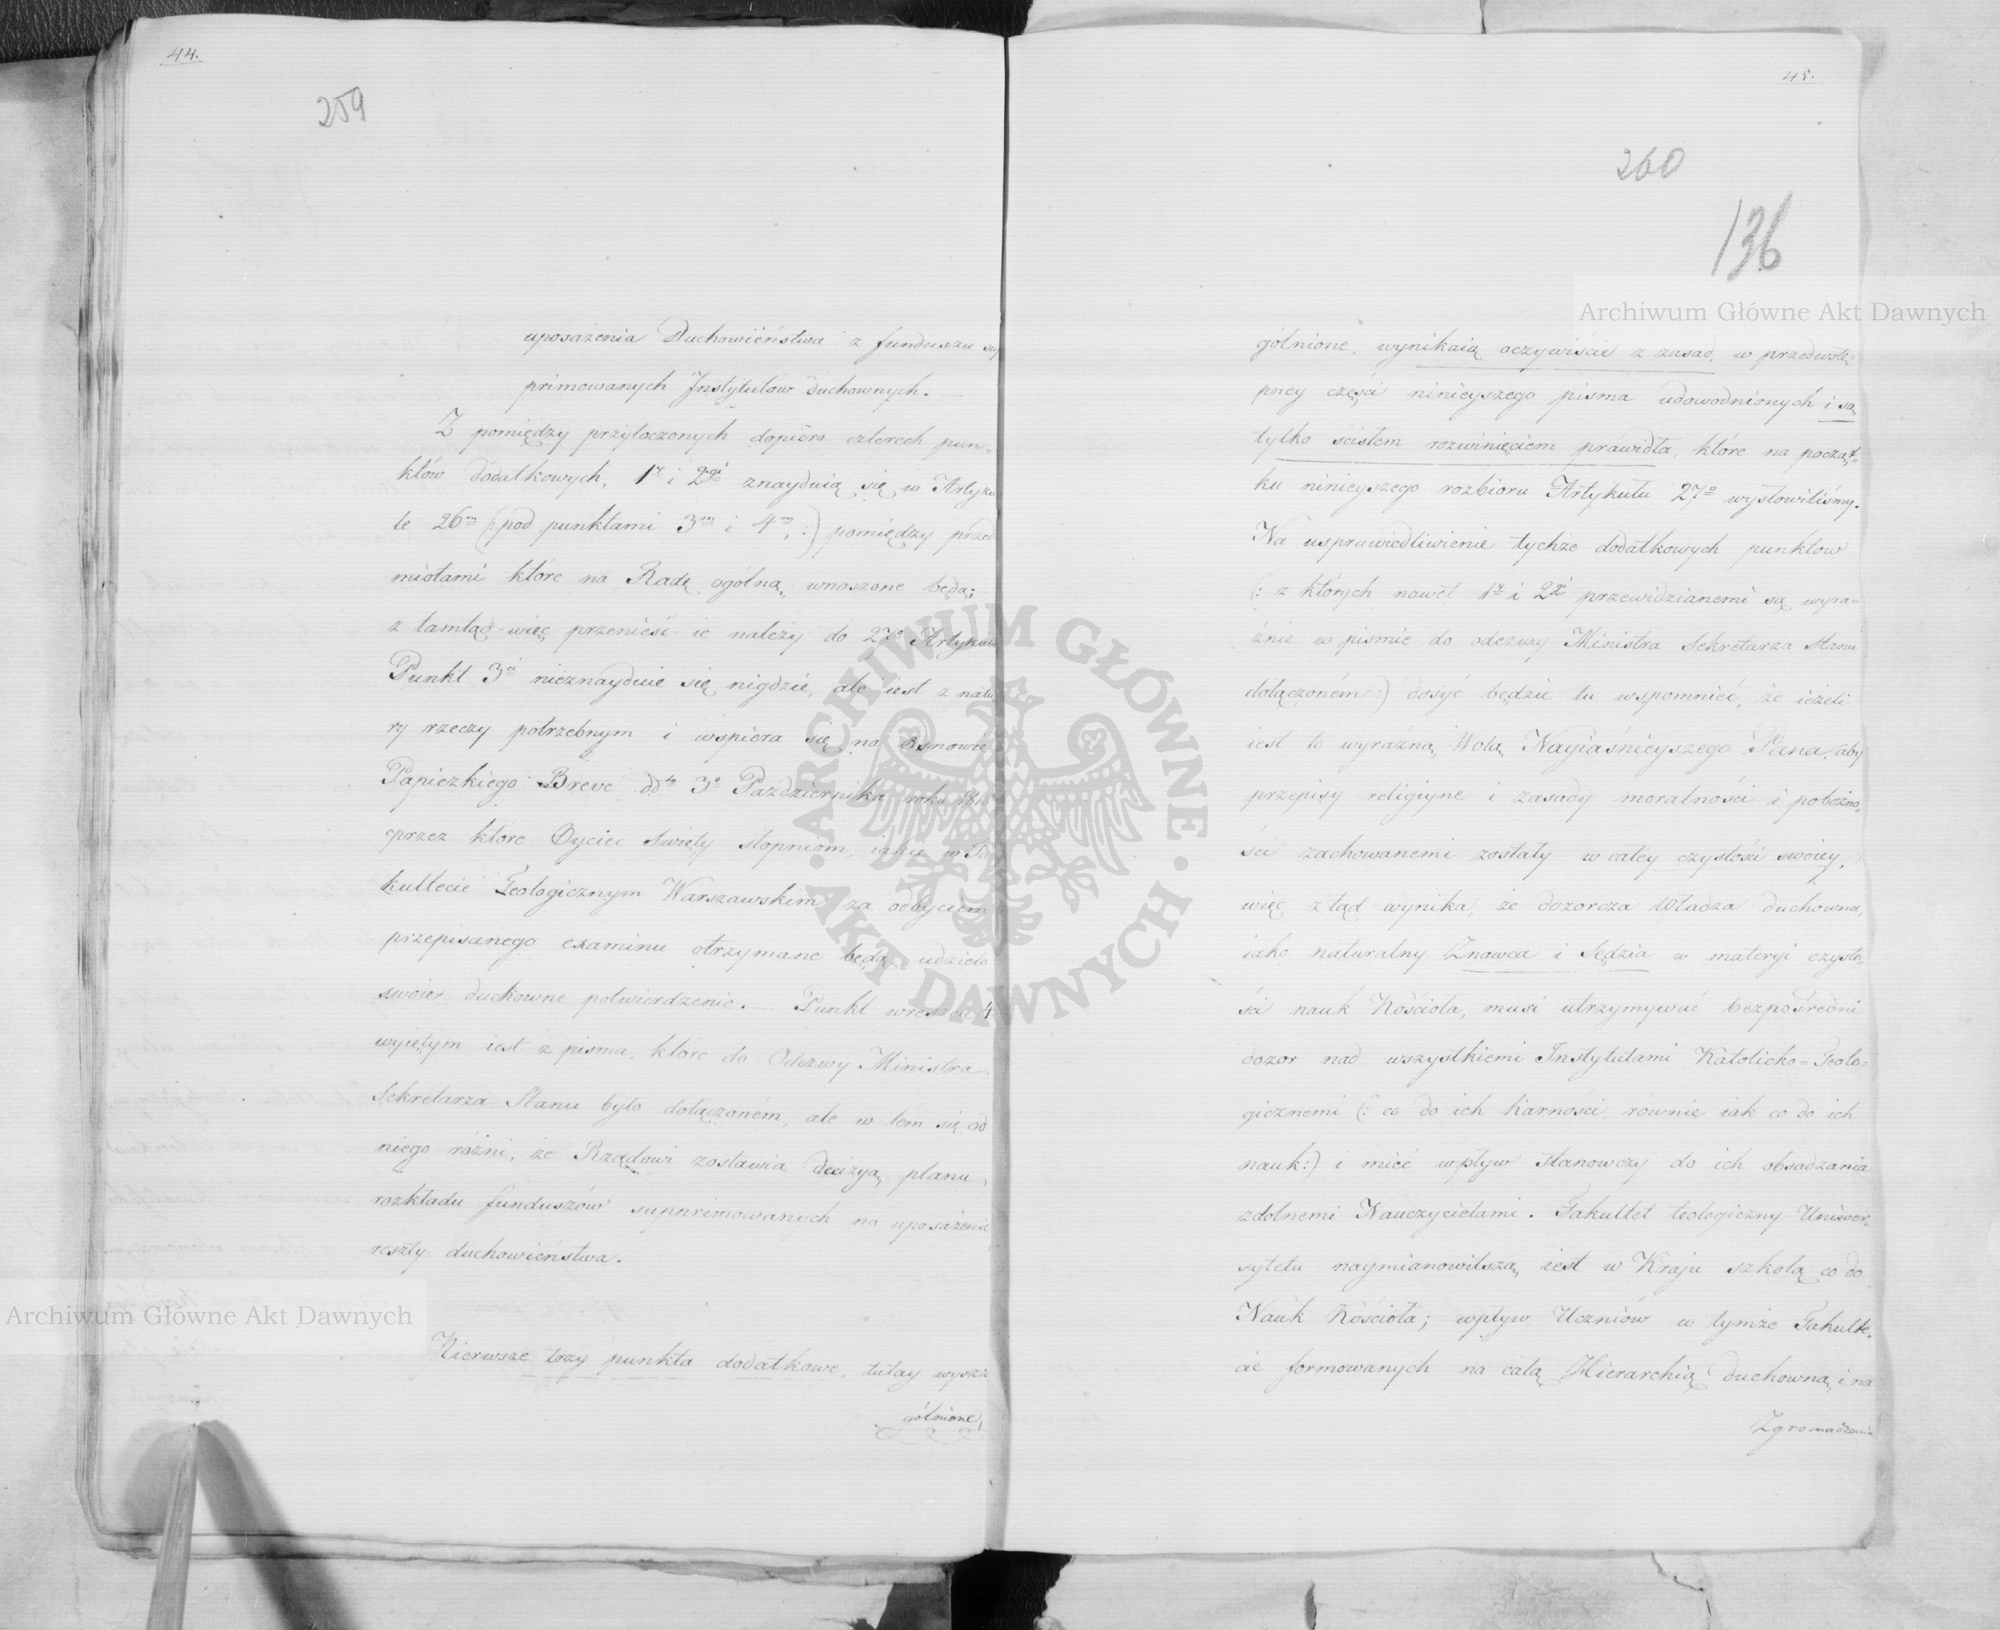 44.
259
uposażenia Duchowieństwa z funduszu sup
primowanych Jnstytutów duchownych. —
Z pomiędzy przytoczonych dopiero czterech pun-
któw dodatkowych, 1y i 2gi znayduią się w Artyku
le 26m (: pod punktami 3m i 4m, :) pomiędzy przed
miotami które na Radę ogólną, wnoszone będą;
z tamtąd więc przenieść ie należy do 27o Artykułu
Punkt 3ci nieznayduie się nigdzie, ale iest z natu
ry rzeczy potrzebnym i wspiera się na osnowie
Papiezkiego Breve ddto 3o Października roku 181
przez które Oyciec Święty stopniom, iakie w Fa
kultecie Teologicznym Warszawskim za odbyciem
przepisanego examinu otrzymane będą, udziela
swoie duchowne potwierdzenie. — Punkt wreszcie 4
wyiętym iest z pisma, które do Odezwy Ministra
Sekretarza Stanu było dołączoném, ale w tem się od
niego różni, że Rządowi zostawia decizyą planu,
rozkładu funduszów supprimowanych na uposażenie
reszty duchowieństwa.
Pierwsze trzy punkta dodatkowe, tutay wyszcze
gólnione,
45.
260
136
gólnione, wynikaią oczywiście z zasad, w przedwstę-
pney części ninieyszego pisma udowodnionych i są
tylko ścisłem rozwinięciem prawidła, które na począt-
ku ninieyszego rozbioru Artykułu 27o wysłowiliśmy.
Na usprawiedliwienie tychże dodatkowych punktow
(: z których nawet 1y i 2gi przewidzianemi są wyra-
źnie w pismie do odezwy Ministra Sekretarza Stanu
dołączoném :) dosyć będzie tu wspomnieć, że ieżeli
iest to wyraźną Wolą Nayiaśnieyszego Pana, aby
przepisy religiyne i zasady moralności i pobożno-
ści zachowanemi zostały w całey czystości swoiey,
więc ztąd wynika, że dozorcza Władza duchowna,
iako naturalny Znawca i Sędzia w materyi czysto-
ści nauk Kościoła, musi utrzymywać bezpośredni
dozor nad wszystkiemi Instytutami Katolicko-Teolo-
gicznemi (: co do ich karności, rownie iak co do ich
nauk :) i mieć wpływ stanowczy do ich obsadzania
zdolnemi Nauczycielami. Fakultet teologiczny Uniwer-
sytetu naymianowitszą iest w Kraju szkołą co do
Nauk Kościoła; wpływ Uczniów w tymże Fakulte-
cie formowanych na całą Hierarchią duchowną i na
Zgromadzenia
Archiwum Główne Akt Dawnych
Archiwum Główne Akt Dawnych
ARCHIWUM GŁÓWNE AKT DAWNYCH